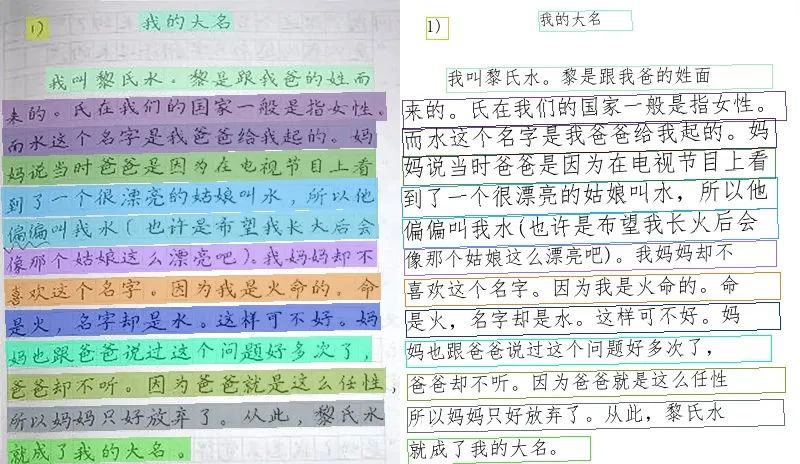 1)
我的大名
我叫黎氏水。黎是跟我爸的姓而
来的。氏在我们的国家一般是指女性。
而水这个名字是我爸爸给我起的。妈
妈说当时爸爸是因为在电视节目上看
到了一个很漂亮的姑娘叫水，所以他
偏偏叫我水(也许是希望我长大后会
像那个姑娘这么漂亮吧)。我妈妈却不
喜欢这个名字。因为我是火命的。命
是火，名字却是水。这样可不好。妈
妈也跟爸爸说过这个问题好多次了，
爸爸却不听。因为爸爸就是这么任性，
所以妈妈只好放弃了。从此，黎氏水
就成了我的大名。
1)
我的大名
我叫黎氏水。黎是跟我爸的姓面
来的。氏在我们的国家一般是指女性。
而水这个名字是我爸爸给我起的。妈
妈说当时爸爸是因为在电视节目上看
到了一个很漂亮的姑娘叫水，所以他
偏偏叫我水(也许是希望我长火后会
像那个姑娘这么漂亮吧)。我妈妈却不
喜欢这个名字。因为我是火命的。命
是火，名字却是水。这样可不好。妈
妈也跟爸爸说过这个问题好多次了，
爸爸却不听。因为爸爸就是这么任性
所以妈妈只好放弃了。从此，黎氏水
就成了我的大名。